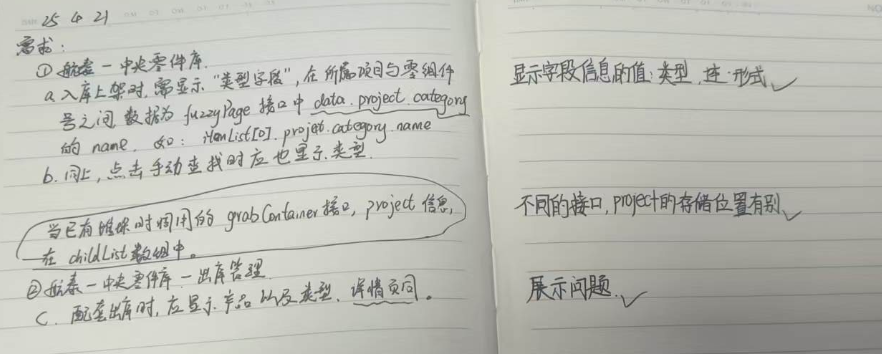 25 4 21
需求：
① 航泰-中央零件库.
a. 入库上架时. 需显示"类型字段", 在所属项目与零组件
号之间. 数据为 fuzzyPage 接口中 data.project.category
的 name. 如: itemList[0].project.category.name
b. 同上, 点击手动查找时应也显示类型.
当已有
时调用的 grabContainer接口, project 信息,
在 childList数组中.
② 航泰-中央零件库-出库管理
C. 配套出库时, 应显示产品以及类型. 详情页同。
显示字段信息的值: 类型
形式 ✓
不同的接口, project的存储位置有别. ✓
展示问题. ✓